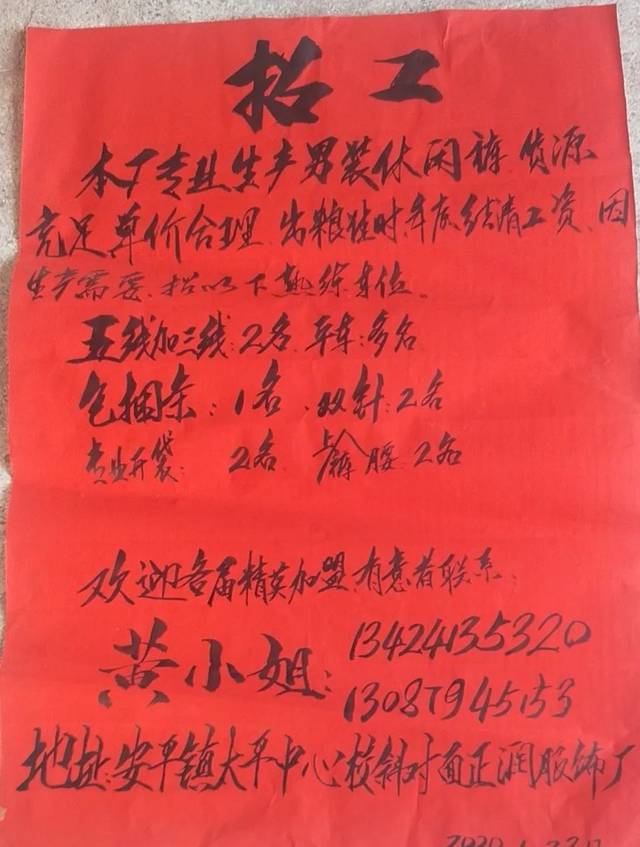 招工
本厂专业生产男装休闲裤 货源
充足 单价合理 出粮准时 年底结清工资 因
生产需要 招以下熟练车位
五线加三线:2名 平车:多名
包捆条:1名 双针:2名
专业开袋:2名 上裤腰 2名
欢迎各届精英加盟 有意者联系:
黄小姐: 13424135320
13087945153
地址:安平镇大平中心校斜对面正润服饰厂